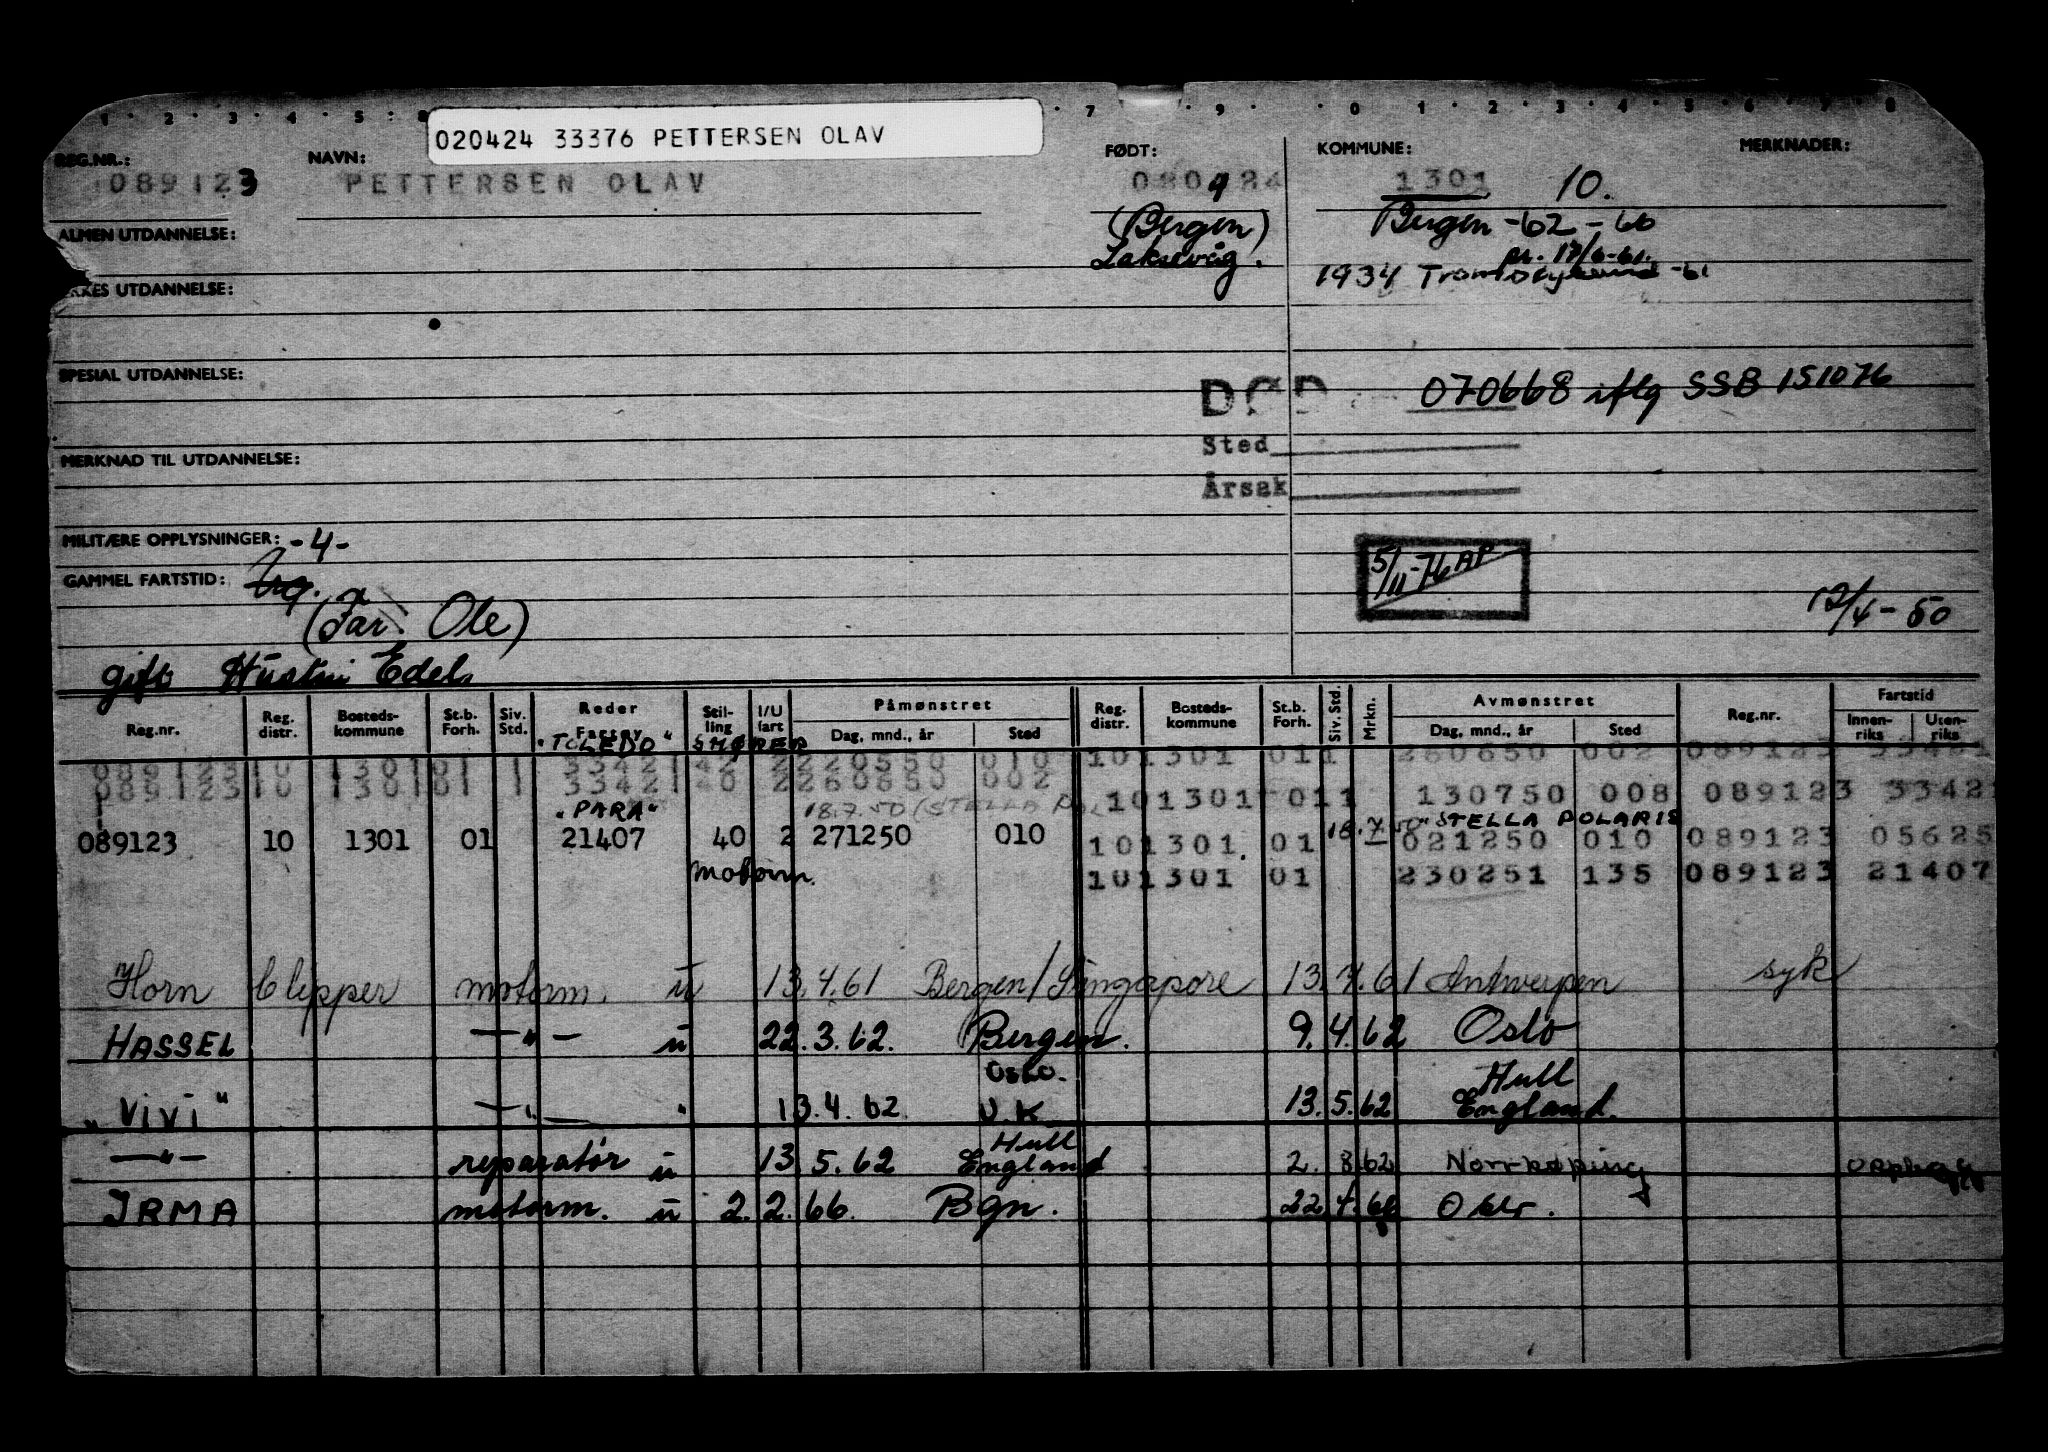 1 2 3 4 5 7 9 0 1 2 3 4 5 6 7 8
020424 33376 PETTERSEN OLAV
REG.NR.: NAVN: FØDT: KOMMUNE: MERKNADER:
089123 PETTERSEN OLAV 1301 10.
(Bergen) Bergen -62 - 66
ALMEN UTDANNELSE:
Laksevåg.
1934 -61
UTDANNELSE:
SPESIAL UTDANNELSE:
DØD 070668 iflg SSB 151076
Sted
MERKNAD TIL UTDANNELSE:
Årsak
MILITÆRE OPPLYSNINGER: -4-
5/11-76 AP
GAMMEL FARTSTID:
(Far: Ole) 12/4-50
gift Edel.
Reg.nr. Reg. distr. Bosteds-kommune St.b. Forh. Siv. Std. Reder Fartøy Stil-ling I/U fart Påmønstret Dag, mnd., år Sted Reg. distr. Bosteds-kommune St.b. Forh. Siv. Std. Mrkn. Avmønstret Dag, mnd., år Sted Reg.nr. Fartstid Innen-riks Uten-riks
"TOLEDO" SMØRER
089123 10 1301 01 1 33421 42 2 220550 010 10 1301 01 1 260650 002 089123 33421
089123 10 1301 01 1 33421 40 2 260650 002
"PARA" 18.7.50 (STELLA POL 10 1301 01 1 130750 008 089123 3342
18.7.50 "STELLA POLARIS
089123 10 1301 01 21407 40 2 271250 010 10 1301 01 021250 010 089123 05625
motorm. 10 1301 01 230251 135 089123 21407
Horn Clipper motorm. u 13.4.61 Bergen/Singapore 13.7.61 Antwerpen syk
HASSEL —"— u 22.3.62. Bergen. 9.4.62 Oslo
Oslo. Hull
"Vivi" —"— " 13.4.62. U.K. 13.5.62 England.
Hull
—"— reparatør u 13 5.62 England 2. 8.62 Norrkøping opplegg
IRMA motorm. u 2.2.66. Bgn. 22.4.66